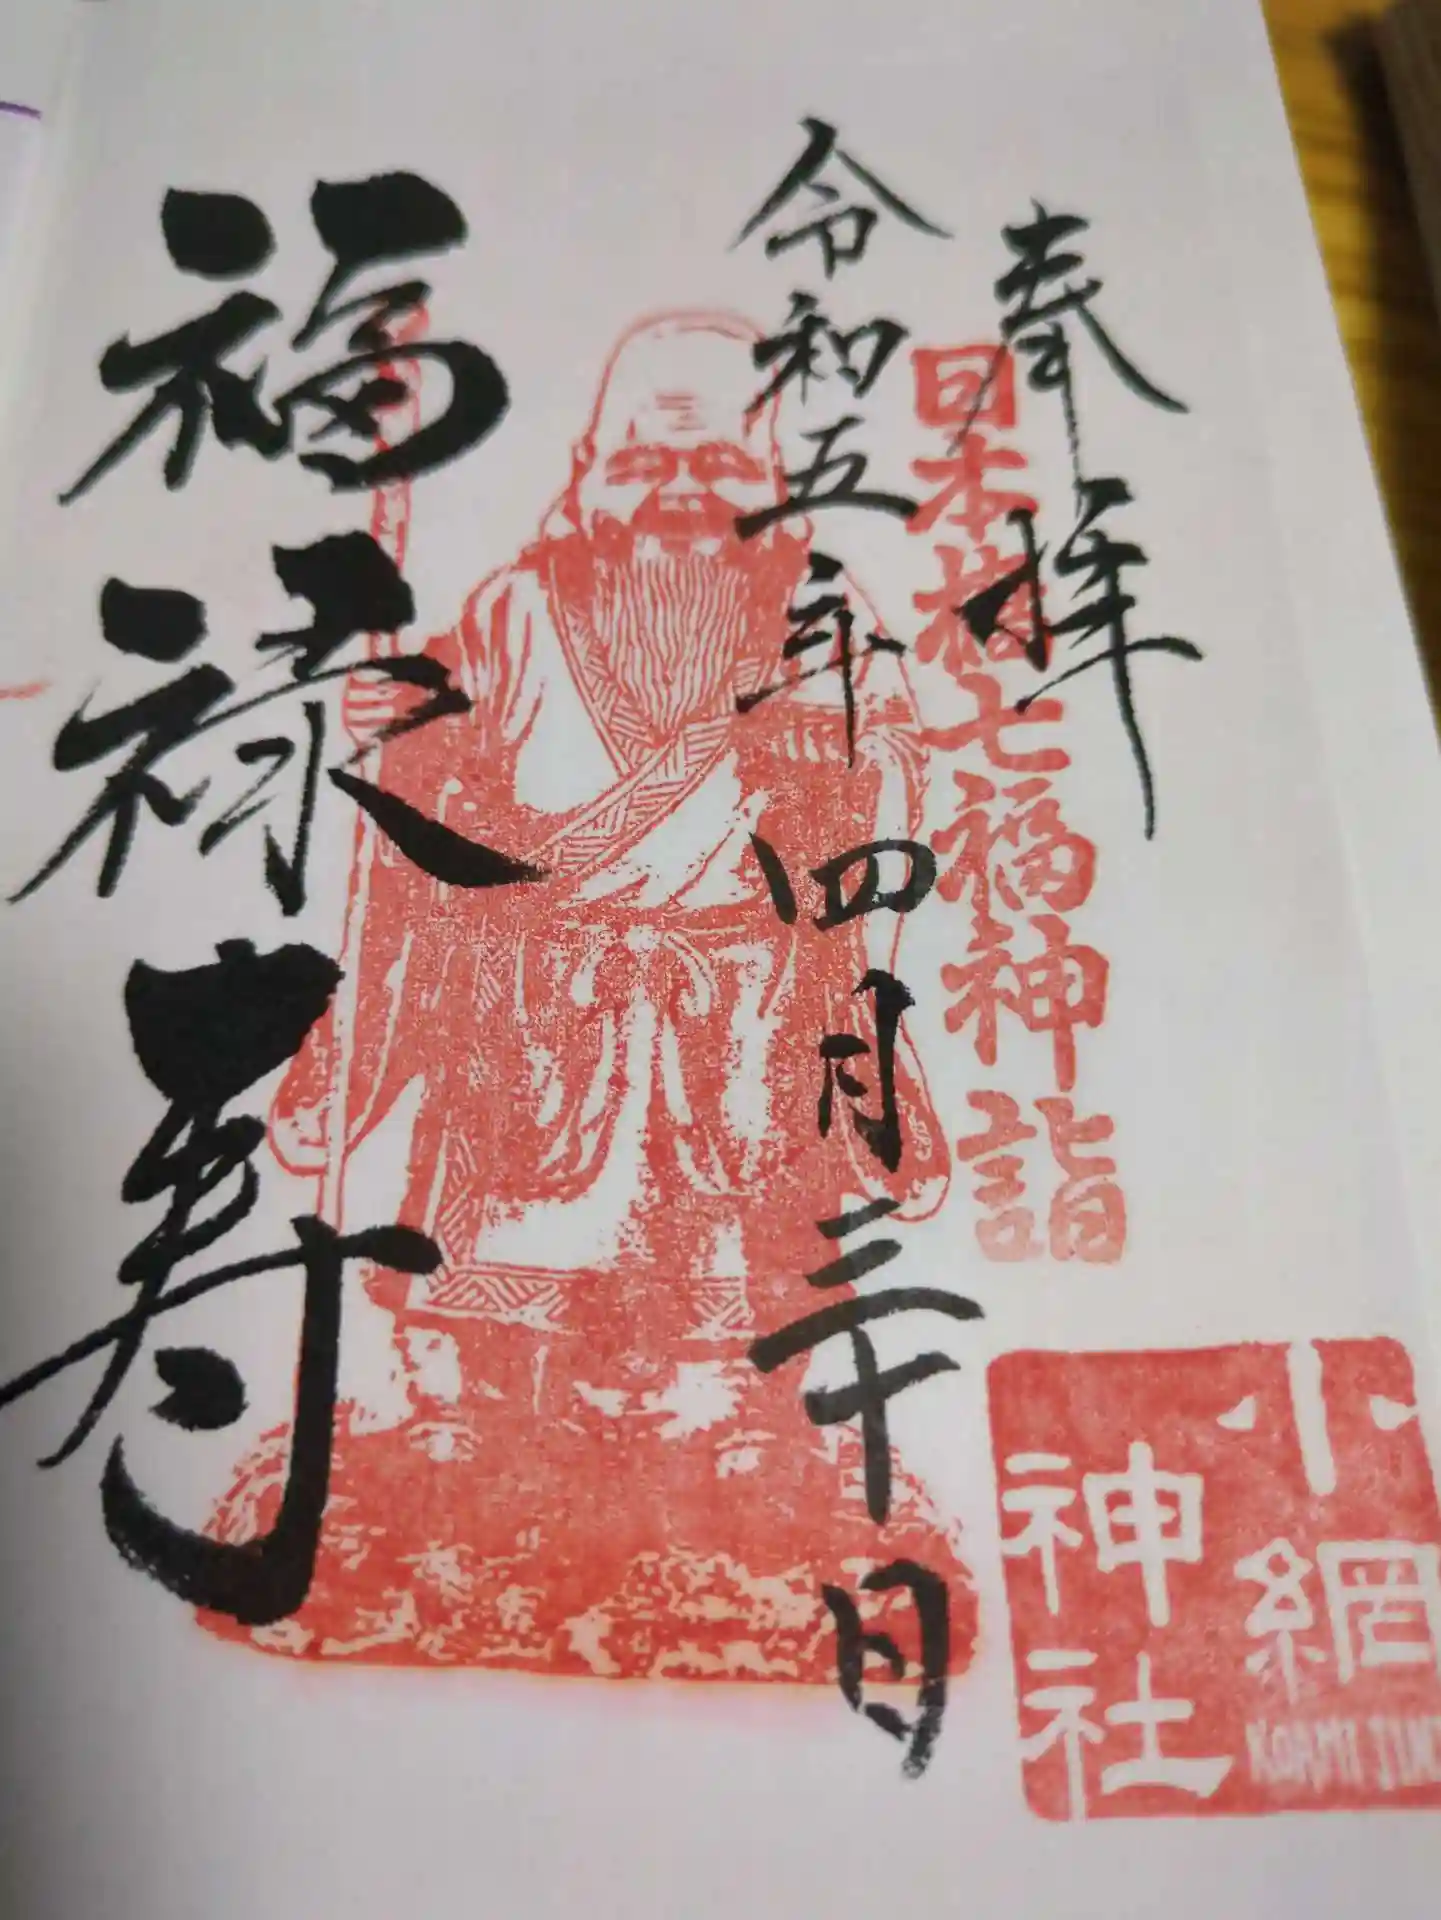 奉拝
日本橋七福神詣
令和五年 四月三十日
福禄寿
小網
神社
KOAMI JIN